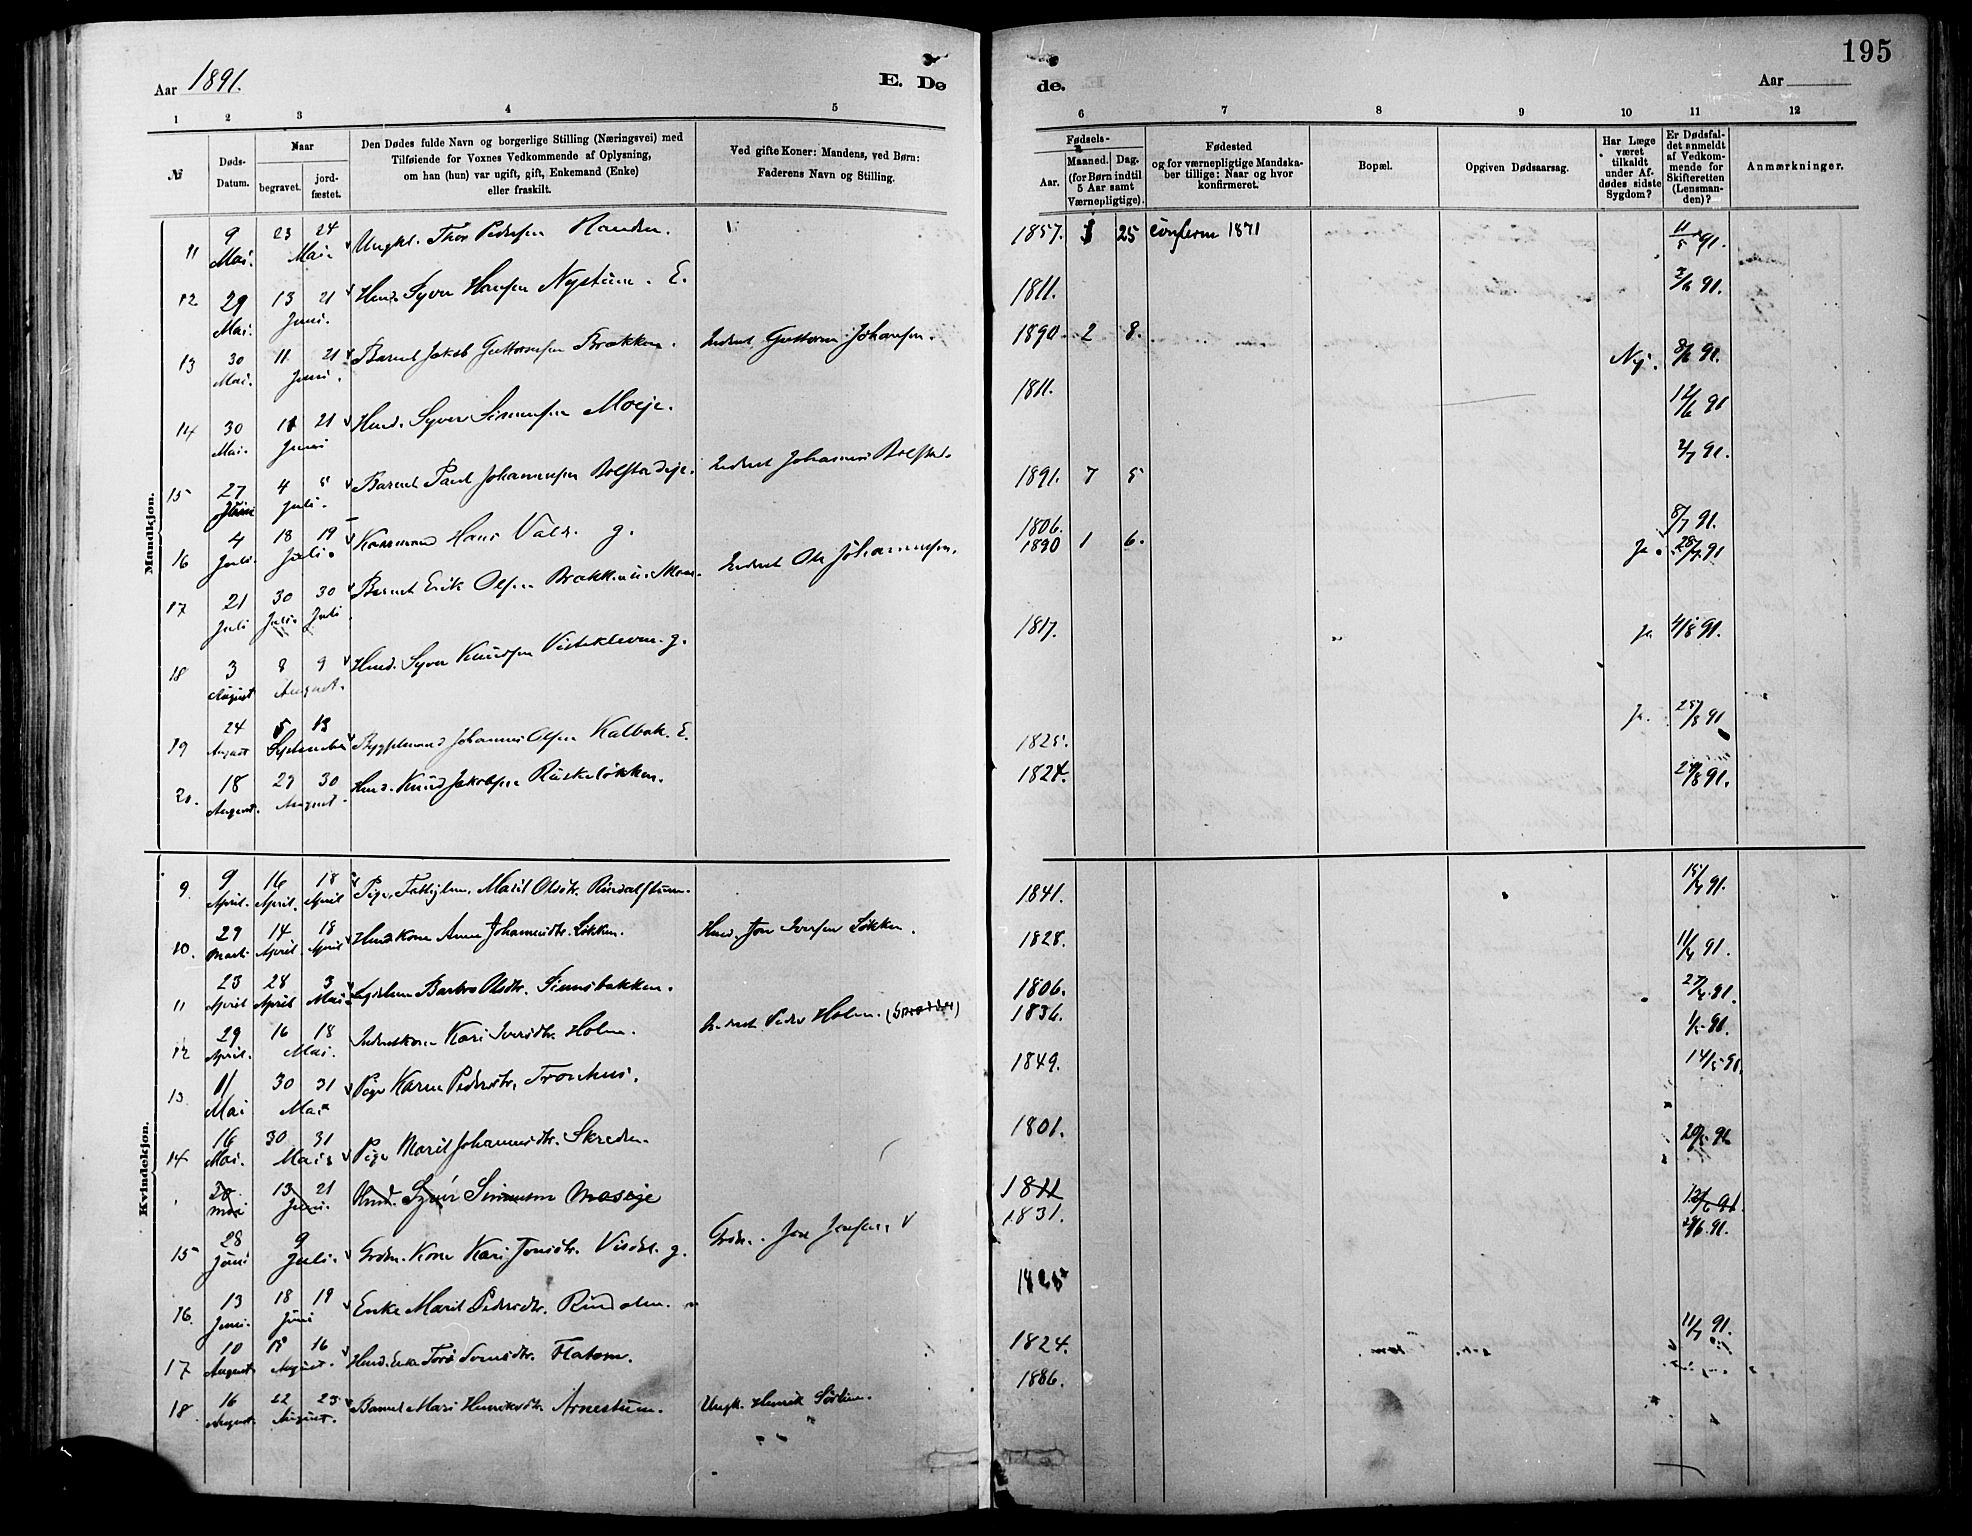 195
Aar 1891.
E. Dø
de.
Aar
1 2 3 4 5 6 7 8 9 10 11 12
№
Døds-
Datum.
Naar
begravet.
jord-
fæstet.
Den Dødes fulde Navn og borgerlige Stilling (Næringsvei) med
Tilføiende for Voxnes Vedkommende af Oplysning,
om han (hun) var ugift, gift, Enkemand (Enke)
eller fraskilt.
Ved gifte Koner: Mandens, ved Børn:
Faderens Navn og Stilling.
Fødsels-
Aar.
Maaned.
Dag.
(for Børn indtil
5 Aar samt
Værnepligtige).
Fødested
og for værnepligtige Mandska-
ber tillige: Naar og hvor
konfirmeret.
Bopæl.
Opgiven Dødsaarsag.
Har Læge
været
tilkaldt
under Af-
dødes sidste
Sygdom?
Er Dødsfal-
det anmeldt
af Vedkom-
mende for
Skifteretten
(Lensman-
den)?
Anmærkninger.
Mandkjøn.
11 9 Mai. 23 24 Mai. Ungkl. Thor Pedersen 1857. 25 conferm 1871 11/5 91.
12 29 Mai. 13 21 Juni. Huusm. Syver Hansen Nystuen. E. 1811. 3/6 91.
13 30 Mai. 11 21 Juni. Barnet Jakob Guttormsen Brækken. Inderst Guttorm Johansen. 1890 2 8. Nej. 8/6 91.
14 30 Mai. 21 Juni Huusm. Syver Simensen Moeje. 1811. 12/6 91
15 27 Juni 4 5 Juli. Barnet Paul Johannesen Bolstadeje. Inderst Johannes Bolstad. 1891. 7 5 2/7 91.
16 4 Juli. 18 19 Juli. Hans g. 1806. 8/7 91.
17 21 Juli 30 Juli. 30 Juli Barnet Erik Olsen Inderst Ole Johannesen. 1890 1 6. Ja. 28/7 91
18 3 August 8 9 August. Huusm. Syver Knudsen Vistekleven. g. 1817. Ja 4/8 91.
19 24 August 5 13 September Johannes Olsen Kalbak. E. 1825. Ja. 25/8 91
20. 18 August. 29 30 August. Huusm. Knud Jakobsen Ruskeløkken. 1824. 24/8 91.
Kvindekjøn.
9. 9 April. 16 April. 18 April Pige, Fattiglem, Marit Olsdtr. 1841. 15/4 91.
10. 29 Marts 14 April 18 April Huusm. Kone Anne Johannesdtr. Løkken. Huusm. Jon Iversen Løkken. 1828. 11/4 91.
11 23 April 28 April 3 Mai Barbro Olsdtr. Simensbakken. 1806. 27/4 91.
12 29 April. 16 18 Mai. Inderstkone Kari Iversdtr. Holen. Inderst Peder Holen. 1836. 1/5 91.
13 11 Mai 30 31 Mai Pige Karen Pedersdtr. Tronhus. 1849. 14/5 91.
14 16 Mai. 30 31 Mai Pige Marit Johannesdtr. Skreden. 1801. 20/5 91
30 mai 13 21 Juni. Huusm. Syver Simensen Moseje 1811 12/6 91.
15 28 Juni 9 Juli. Grdm. Kone Kari Jonsdtr. Visdal. g. Grdm. Jon Jensen V 1831. 29/6 91.
16. 13 Juni. 18 19 Juni Enke Marit Pedersdtr. Rindalen.
17 10 August. 15 16 August. Huusm. Enke Flaten. 1824. 11/7 91.
18 16 August. 22 23 August. Barnet Mari Henriksdtr. Arnestuen. Ungk. Henrik 1886.